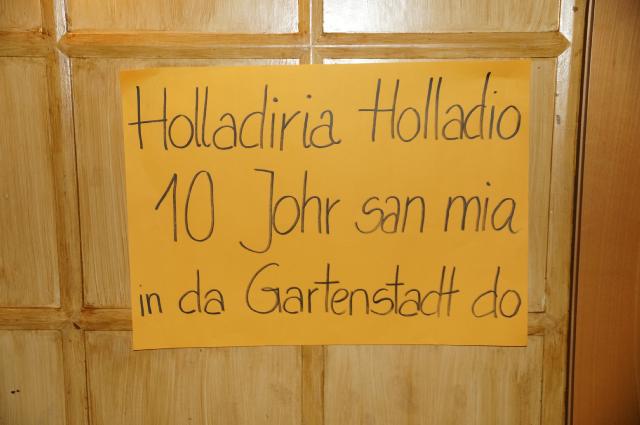 Holladiria Holladio
10 Johr san mia
in da Gartenstadt do